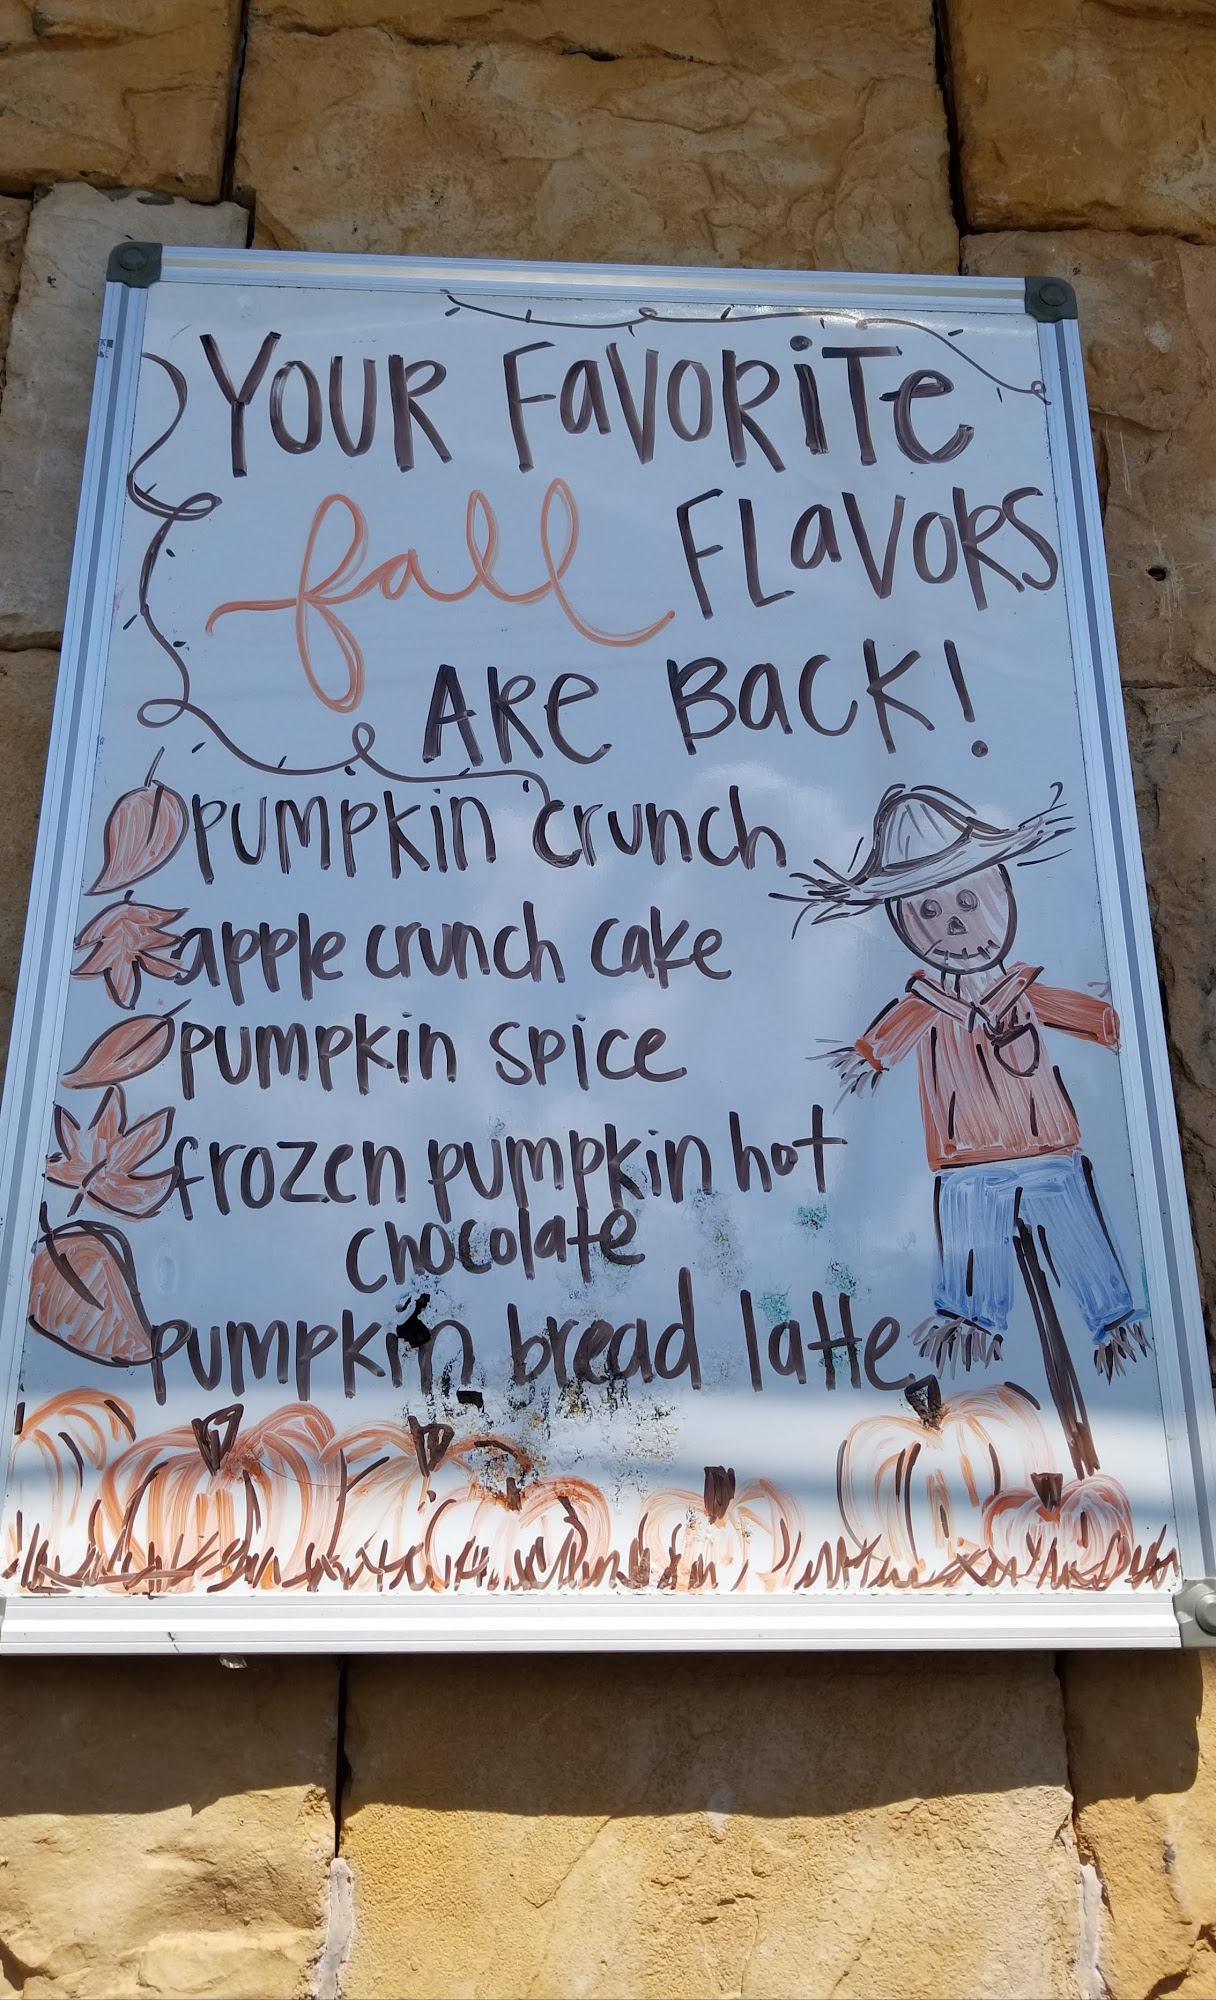 YOUR FavORiTe
fall FLavORS
ARe Back!
pumpkin crunch
apple crunch cake
pumpkin spice
frozen pumpkin hot
chocolate
pumpkin bread latte